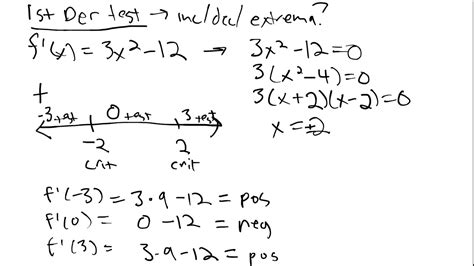 1st Der test → inc/dec/ extrema?
f'(x) = 3x²-12 → 3x²-12=0
3(x²-4)=0
3(x+2)(x-2)=0
x=±2
+
-3 test 0 test 3 test
-2 2
crit crit
f'(-3) = 3·9-12 = pos
f'(0) = 0-12 = neg
f'(3) = 3·9-12 = pos